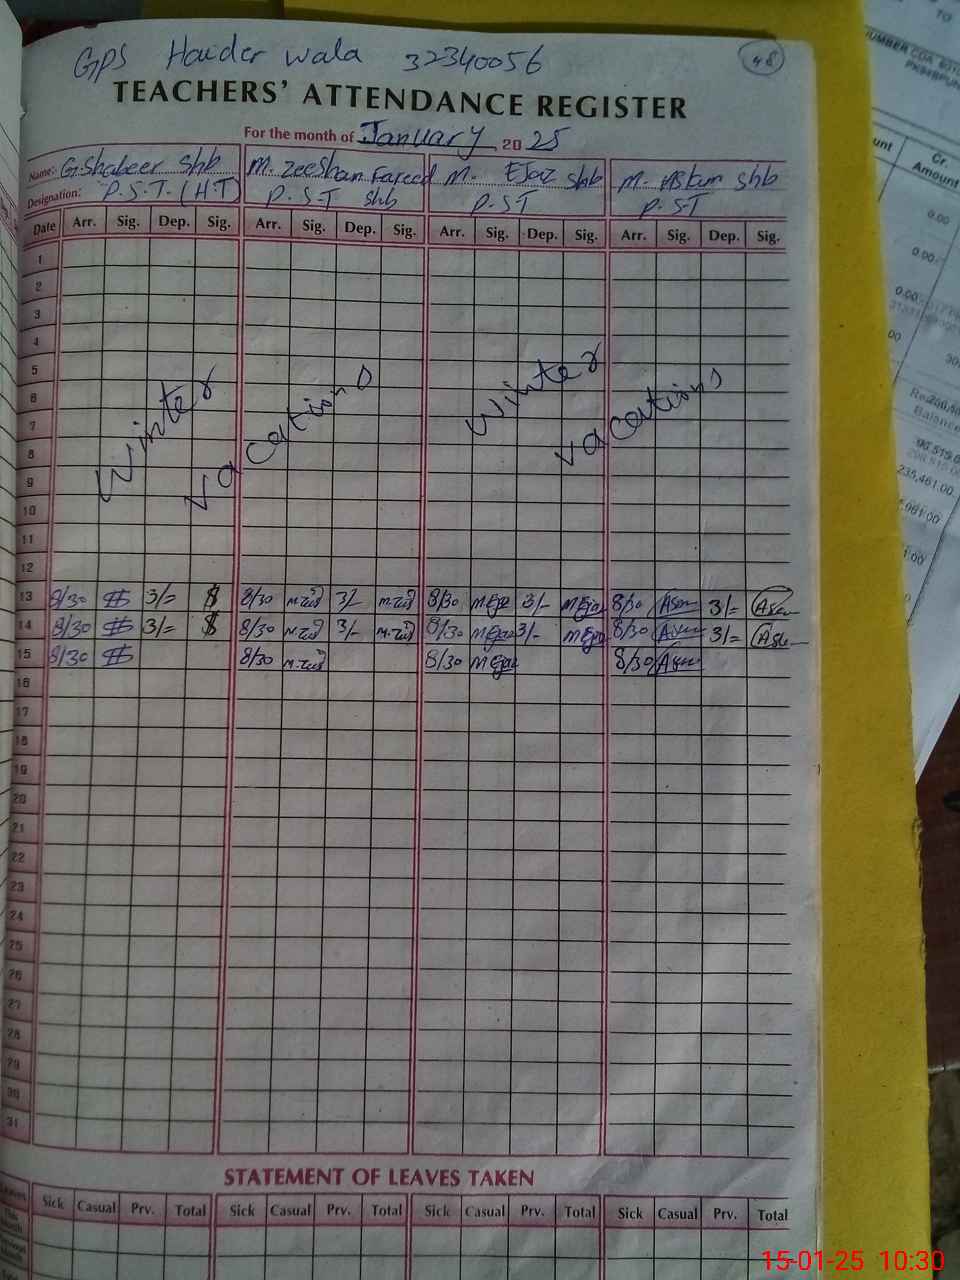 GPS Haider Wala 32340056 48
TEACHERS' ATTENDANCE REGISTER
For the month of January, 2025
Name: G.Shabeer Shb M. Zeeshan Fareed M. EJaz Shb M. Aslam Shb
Designation: P.S.T. (H.T) P.S.T Shb P.S.T P.S.T
Date Arr. Sig. Dep. Sig. Arr. Sig. Dep. Sig. Arr. Sig. Dep. Sig. Arr. Sig. Dep. Sig.
1
2
3
4
5
6
7
8
9
10
11
12
Winter Vacations Winter Vacations
13 8/30 3/= 8/30 3/- 8/30 MEjaz 3/- MEjaz 8/30 Aslam 3/= Aslam
14 8/30 3/= 8/30 3/- 8/30 MEjaz 3/- MEjaz 8/30 Aslam 3/= Aslam
15 8/30 8/30 8/30 MEjaz 8/30 Aslam
16
17
18
19
20
21
22
23
24
25
26
27
28
29
30
31
STATEMENT OF LEAVES TAKEN
Leaves Sick Casual Prv. Total Sick Casual Prv. Total Sick Casual Prv. Total Sick Casual Prv. Total
This Month
Previous Month
TO
NUMBER CDA
unt Cr. Amount
0.00
0.00
0.00
00
Balance
96,515.0
235,461.00
5,961.00
1:00
15-01-25 10:30